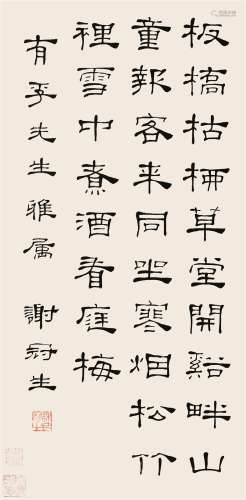 板橋枯柳草堂開谿畔山
童報客来同坐寒烟松竹
裡雪中煮酒看庭梅
有孚先生雅属 謝冠生